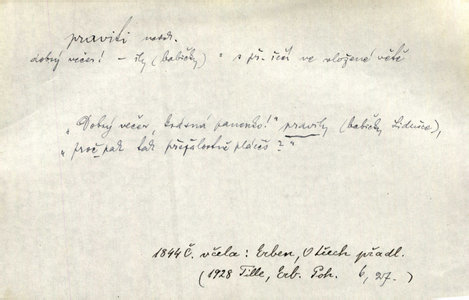 praviti nedok.
dobrý večer! – ily (babičky) " s př. řečí ve složené větě
„Dobrý večer, krásná panenko!" pravily (babičky Lidušce),
„proč pak tak přežalostně pláčeš?"
1844 Č. včela: Erben, O třech přadl.
(1928 Tille, Erb. Poh. 6, 27.)